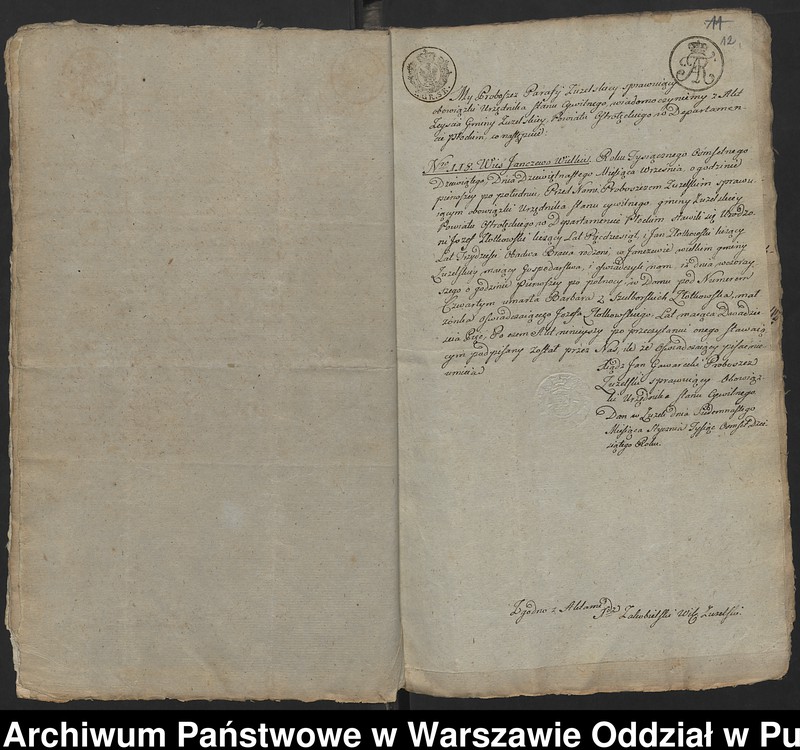 11
12.
My Proboszcz Parafij Zuzelskiey sprawuiący
obowiązki Urzędnika stanu Cywilnego, wiadomo czyniemy z Akt
Zeyscia Gminy Zuzelskiey, Powiatu Ostrołęckiego w Departamen-
cie Płockim, co następuie:
Nro 118. Wieś Janczewo Wielkie. Roku Tysiącznego Ośmsetnego
Dziewiątego, Dnia Dziewiętnastego Miesiąca Września, o godzinie
pierwszey po południu, Przed Nami Proboszczem Zuzelskim sprawu-
iącym obowiązki Urzędnika stanu cywilnego, gminy Zuzelskiey
Powiatu Ostrołęckiego w Departamencie Płockim stawili się Urodze-
ni Jozef Złotkowski liczący Lat Pięćdziesiąt, i Jan Złotkowski liczący
Lat Trzydzieści Obadwa Bracia rodzeni, w Janczewie wielkim gminy
Zuzelskiey maiący Gospodarstwa, i oświadczyli nam, iż dnia wczoray-
szego o godzinie Pierwszey po północy, w Domu pod Numerem
Czwartym umarła Barbara z Szulborskich Złotkowska, mał-
żonka Oświadczaiącego Jozefa Złotkowskiego, Lat maiąca Dwadzie-
ścia Pięć, Po czem Akt ninieyszy po przeczytaniu onego stawaią-
cym podpisany został przez Nas, ile że Oświadczaiący pisać nie
umieią
Xiądz Jan Gawarecki Proboszcz
Zuzelski sprawuiący Obowiąz-
ki Urzędnika stanu Cywilnego
Dan w Zuzeli dnia Siedemnastego
Miesiąca Stycznia Tysiąc Ośmset Dzie-
siątego Roku.
Zgodno z Aktami
Xdz Zakobielski Wik. Zuzelski.
Archiwum Państwowe w Warszawie Oddział w Pu